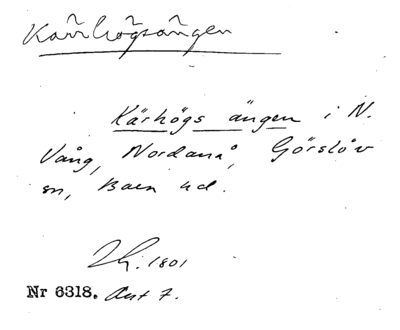 Kärrhögsängen
Kärhögs ängen i N.
Vång, Nordanå, Görslöv
sn, Bara hd.
Lh. 1801
Nr 6318. Akt 7.